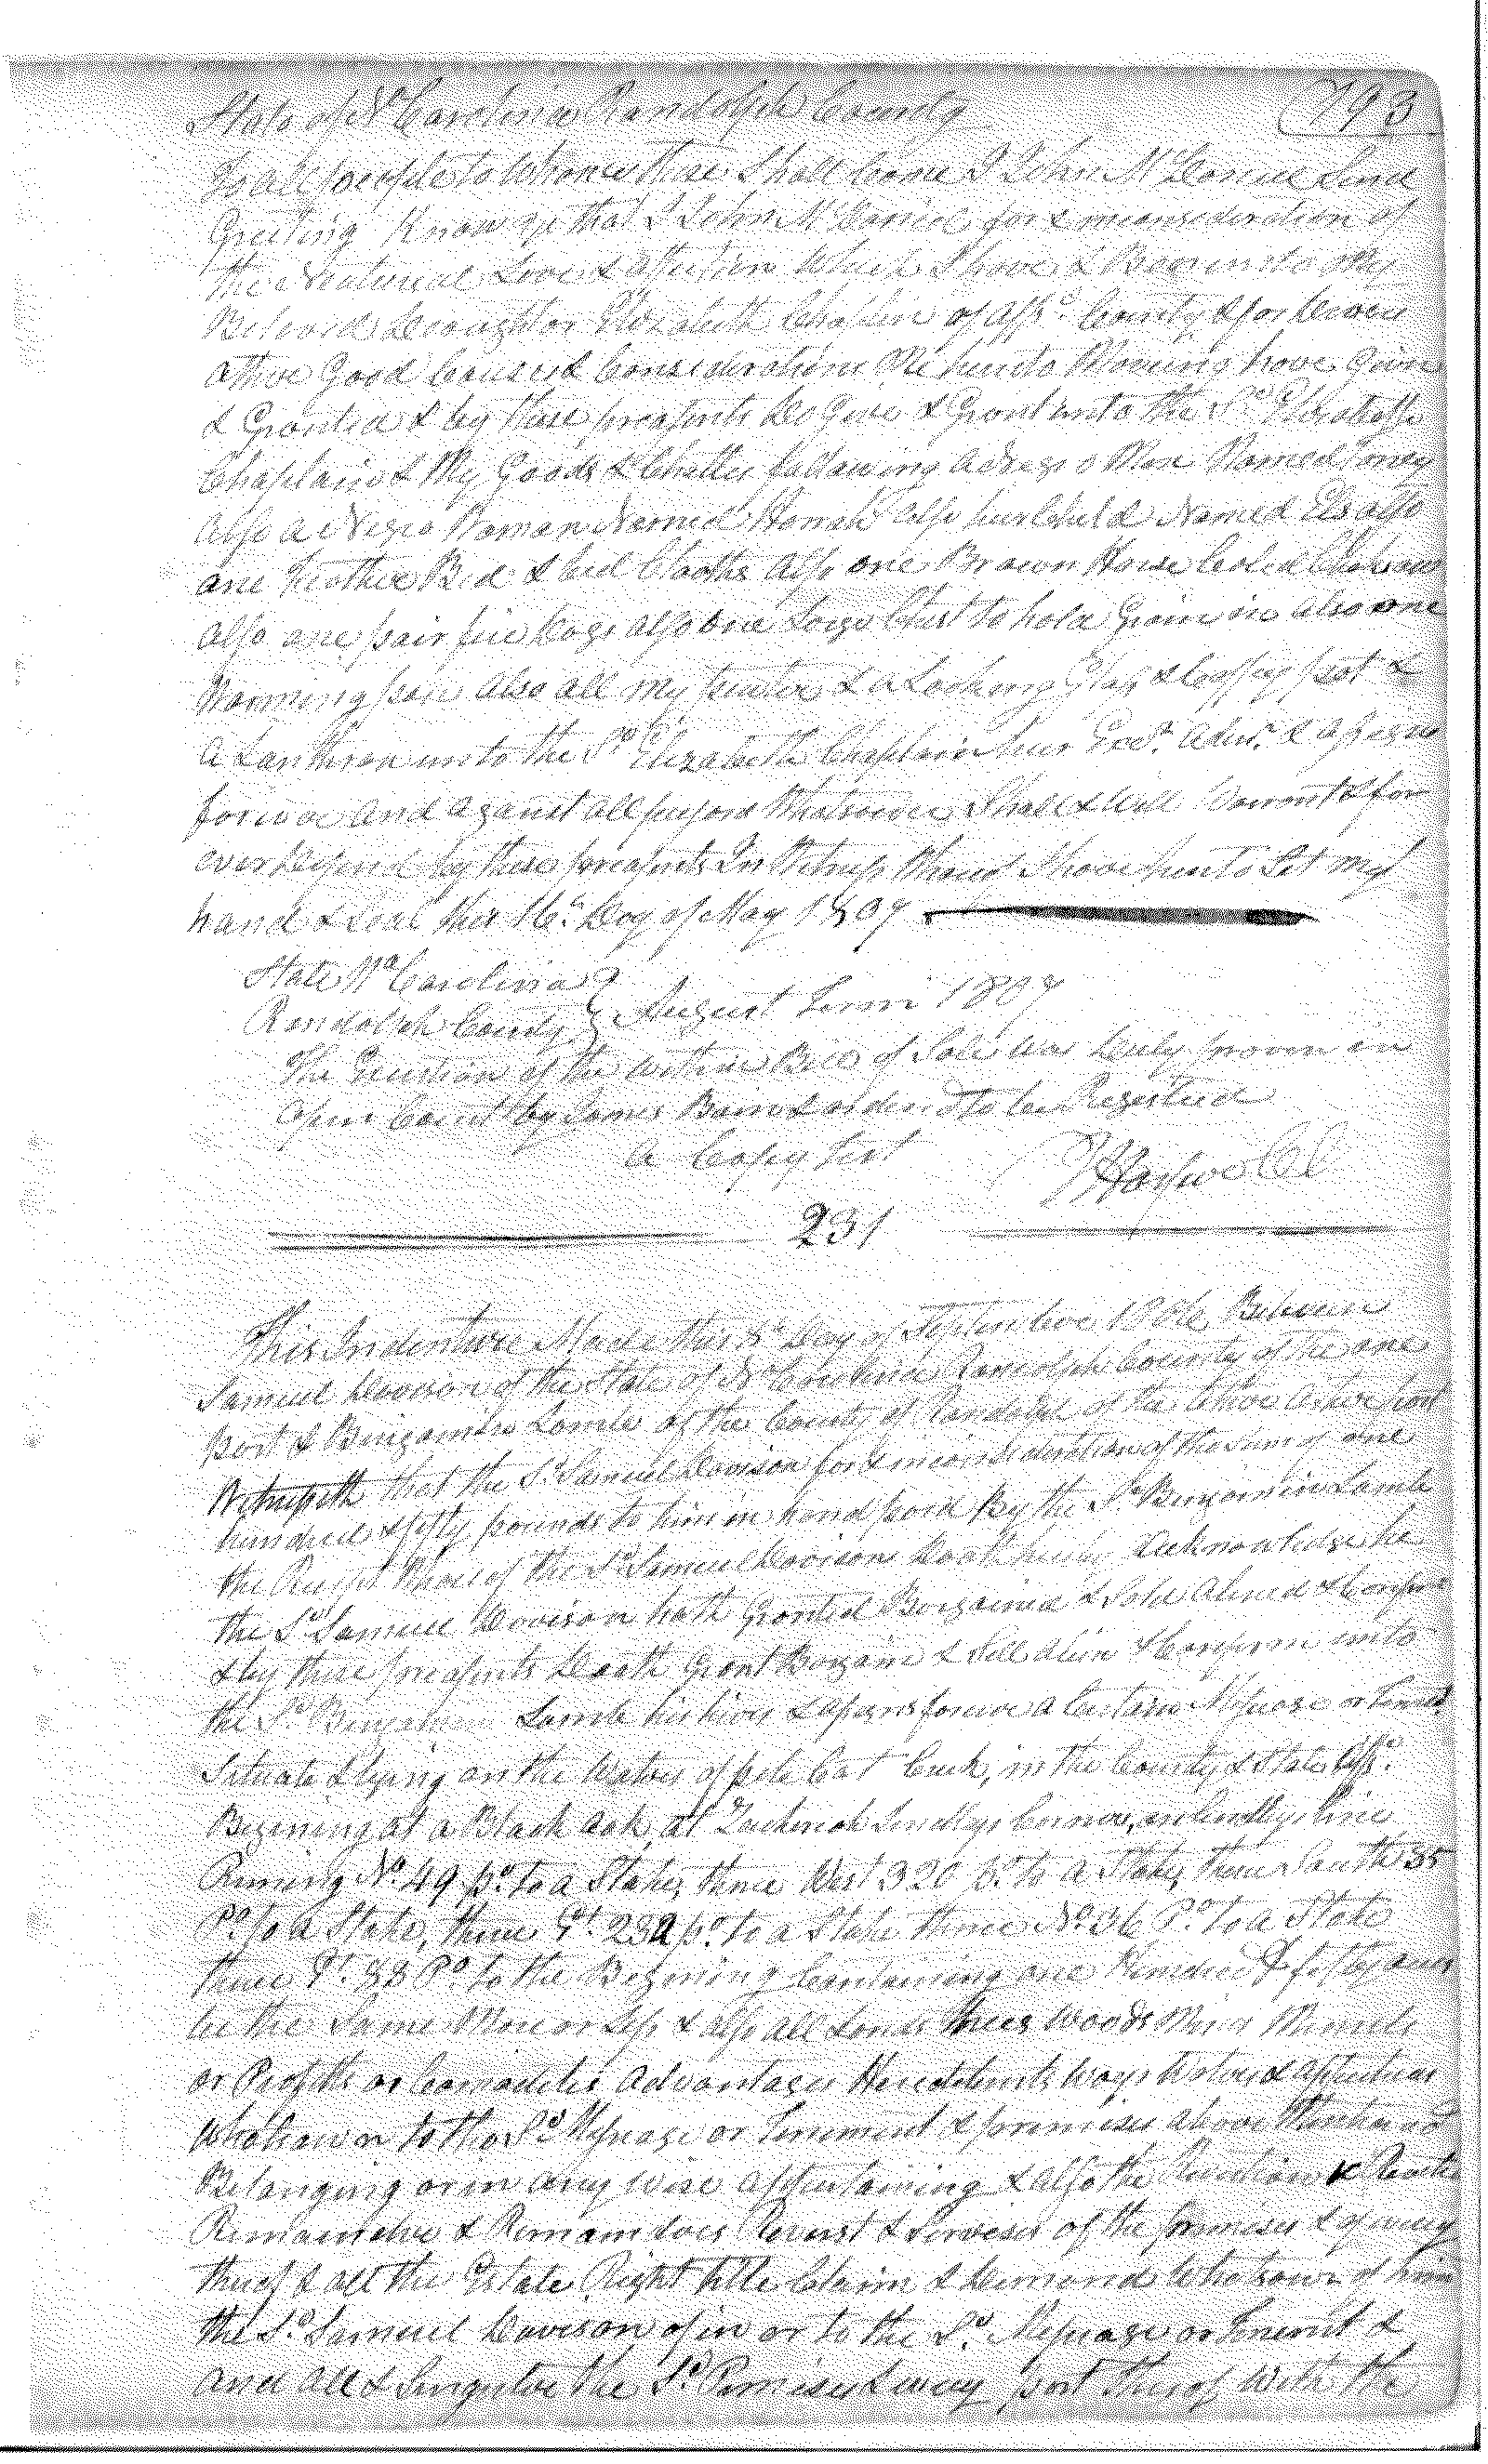 793
State of No Carolina Randolph County
To all people to Whome these Shall Come I John McDaniel Send
Greeting Know ye that I John McDaniel for & in consideration of
the Natureal Love & affection Which I have & Bear unto My
Beloved Daughter Elizabeth Chaplin of affsd. County & for Divers
other Good Causes & Considerations Me hunto Moving have Given
& Granted & by these presents Do Give & Grant unto the Sd Elizabeth
Chaplain & My Goods & Chatles following a Negro Man Named Toney
also a Negro Woman Named Hannah also hur Child Named also
one feather Bed & bed Cloaths also one Brown Horse
also one pair fire Dogs also one Large Chest to hold Grain in also one
Warming pan also all my puter & a Looking Glass & Coffey pot &
a Lanthron unto the Sd Elizabeth Chaplain hur Exr. Admr. & assigns
forever and against all persons Whatsoever Shall & Will Warrant & for
ever Defend by these presents In Witness Whereof I have hunto Set my
hand & Seal this 16th Day of May 1807
State No Carolina
Randolph County } August Term 1807
The Execution of the within Bill of Sale was Duly proven in
open Court by James Bain & ordered to be Registered
A Copy Test J Harper CC
231
This Indenture Made this 3d Day of September 1806 Between
Samuel Davison of the State of No Carolina Randolph County of the one
Part & Bingamin Lamb of the County of Randolph of the other part
Witnesseth that the Sd Samuel Davison for & in consideration of the Sum of one
hundred & fifty pounds to him in hand paid By the Sd Bingamin Lamb
the Receipt Whereof the Sd Samuel Davison Doath hereby Acknowledge he
the Sd Samuel Davison hath Granted Bargained & Sold Aliened &
& by these presents Doath Grant Bargain & Sell Alien & Confirm unto
the Sd Bingamin Lamb his heirs & assigns forever a Certain Messuage or
Situate & lying on the Waters of pole Cat Creek, in the County & State affsd.
Begining at a Black oak at corner, on line
Runing No. 49 po. to a Stake, thence West 320 po. to a Stake, thence South 35
Po. to a Stake, thence Et. 232 po. to a Stake thence No. 36 Po. to a Stake
thence Et. 88 Po. to the Begining Containing one Hundred & fifty acres
be the Same More or Less & also all Lands trees Woods
or Profits or Comodites Advantages Heredetments Ways Waters &
Whatsoever to the Sd Messuage or Tenement & premises above Mentioned
Belonging or in any wise appertaining & also the Revertion &
Remainder & Remainders Rents & Services of the premises & of every
thereof & all the Estate Right title Claim & Demand Whatsoever of him
the Sd. Samuel Davison of in or to the Sd. Messuage or Tenement &
and all & Singular the Sd Premises & every part thereof With the